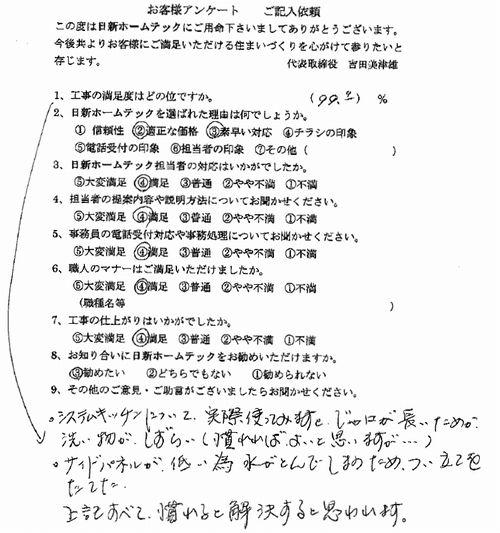 お客様アンケート　ご記入依頼
この度は日新ホームテックにご用命下さいましてありがとうございます。
今後共よりお客様にご満足いただける住まいづくりを心がけて参りたいと
存じます。　代表取締役　吉田美津雄
1、工事の満足度はどの位ですか。　(99.9) %
2、日新ホームテックを選ばれた理由は何でしょうか。
① 信頼性　②適正な価格　③素早い対応　④チラシの印象
⑤電話受付の印象　⑥担当者の印象　⑦その他（　　　）
3、日新ホームテック担当者の対応はいかがでしたか。
⑤大変満足　④満足　③普通　②やや不満　①不満
4、担当者の提案内容や説明方法についてお聞かせください。
⑤大変満足　④満足　③普通　②やや不満　①不満
5、事務員の電話受付対応や事務処理についてお聞かせください。
⑤大変満足　④満足　③普通　②やや不満　①不満
6、職人のマナーはご満足いただけましたか。
⑤大変満足　④満足　③普通　②やや不満　①不満
(職種名等　　　)
7、工事の仕上がりはいかがでしたか。
⑤大変満足　④満足　③普通　②やや不満　①不満
8、お知り合いに日新ホームテックをお勧めいただけますか。
③勧めたい　②どちらでもない　①勧められない
9、その他のご意見・ご助言がございましたらお聞かせください。
。システムキッチンについて、実際使ってみますと、じゃ口が長いためか、
洗い物がしずらい（慣れればよいと思いますが…）
。サイドパネルが、低い為 水がとんでしまうため、つい立てを
たてた。
上記すべて、慣れると解決すると思われます。